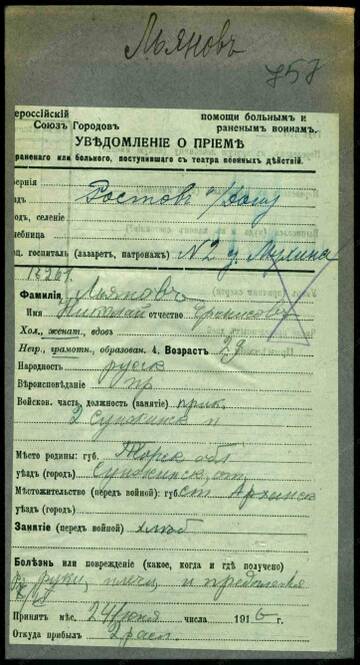 Льяновъ
757
ероссійскій помощи больнымъ и
Союзъ Городовъ раненымъ воинамъ.
УВѢДОМЛЕНІЕ О ПРІЕМѢ
раненаго или больного, поступившаго съ театра военныхъ дѣйствій.
бернія
Ростовъ н/Дону
одъ, селеніе
чебница
госпиталь (лазаретъ, патронажъ) №2 у
Фамилія Льяновъ
Имя Николай отчество
Хол., женат., вдовъ
Негр., грамотн., образован. 4. Возрастъ 29
Народность русск
Вѣроисповѣданіе пр
Войсков. часть, должность (занятіе) прик.
2 Сунженск п
Мѣсто родины: губ. Терск обл
уѣздъ (городъ) Сунженск. от.
Мѣстожительство (передъ войной): губ. ст
уѣздъ (городъ)
Занятіе (передъ войной) хлѣб
Болѣзнь или поврежденіе (какое, когда и гдѣ получено)
руки, плеча и предплечья
Принятъ мѣс. 24 Іюня числа 1916 г.
Откуда прибылъ